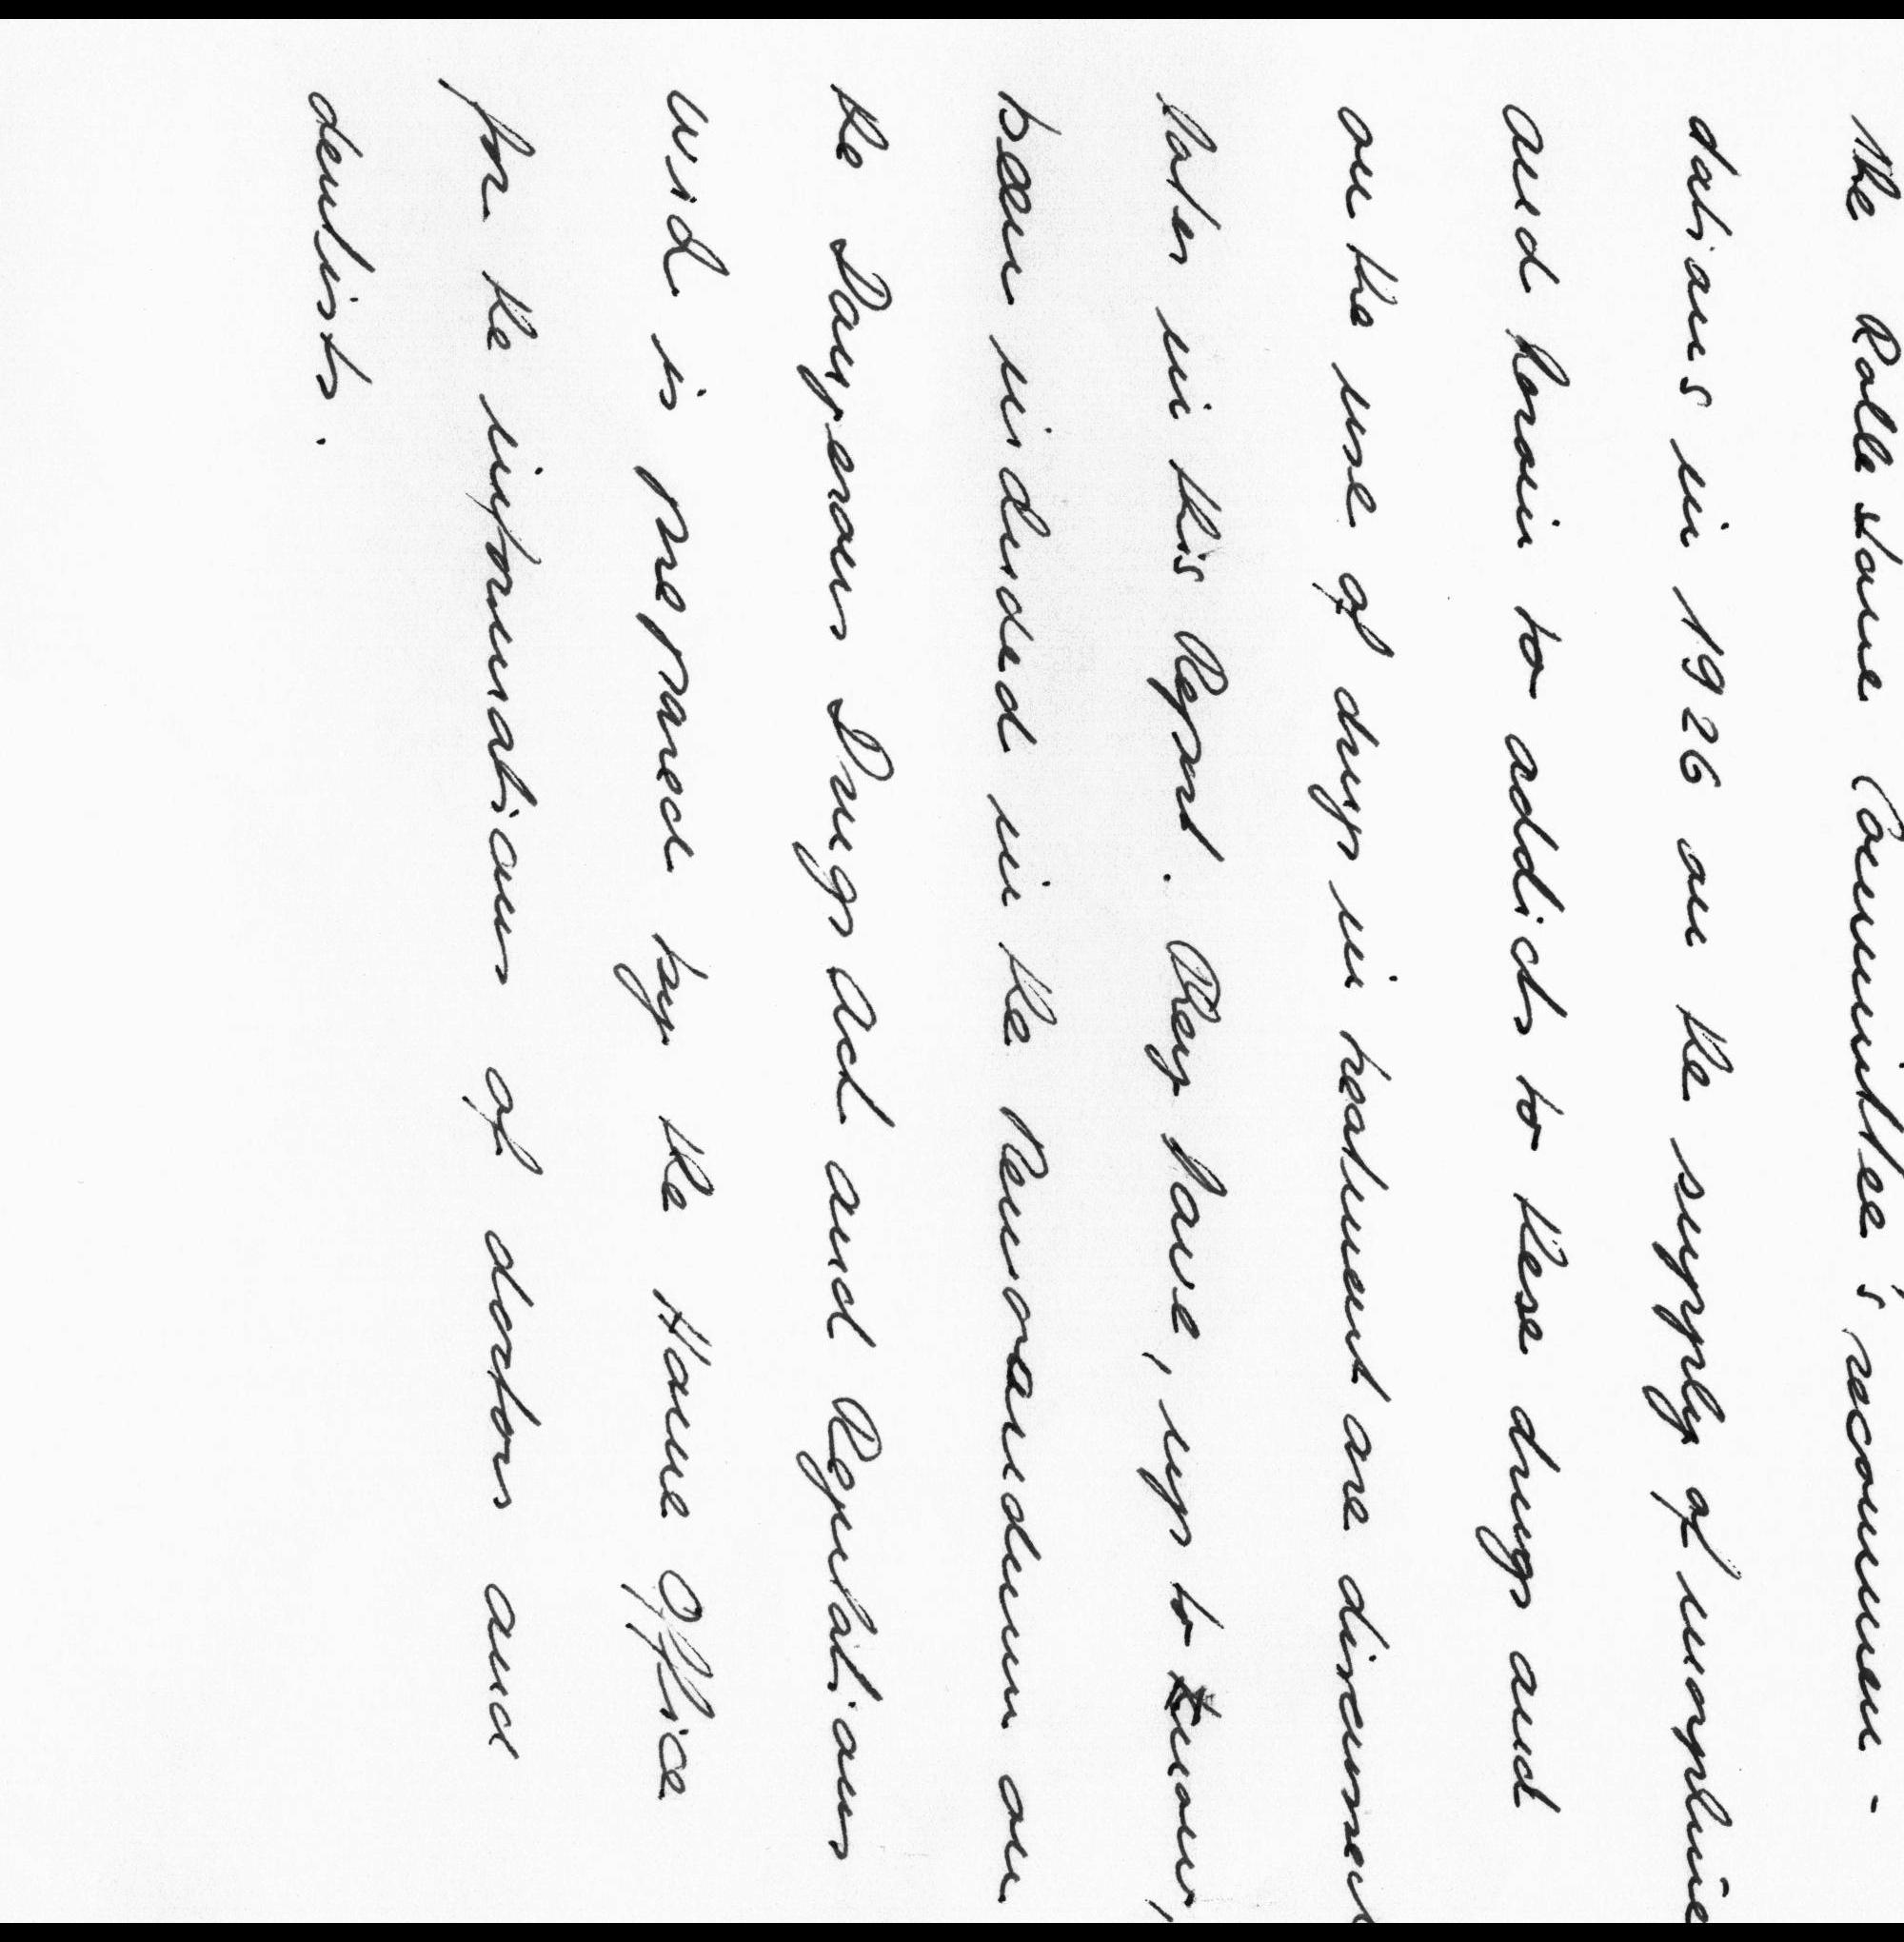 The Rolle stone Committee's recommen-
dations in 1926 on the supply of morphine
and heroin to addicts to these drugs and
on the use of drugs in treatment are discussed
later in this Report. They have, up to know,
been included in the Memorandum on
the Dangerous Drugs Act and Regulations
wich is prepared by the Home Office
for the informations of doctors and
dentists.